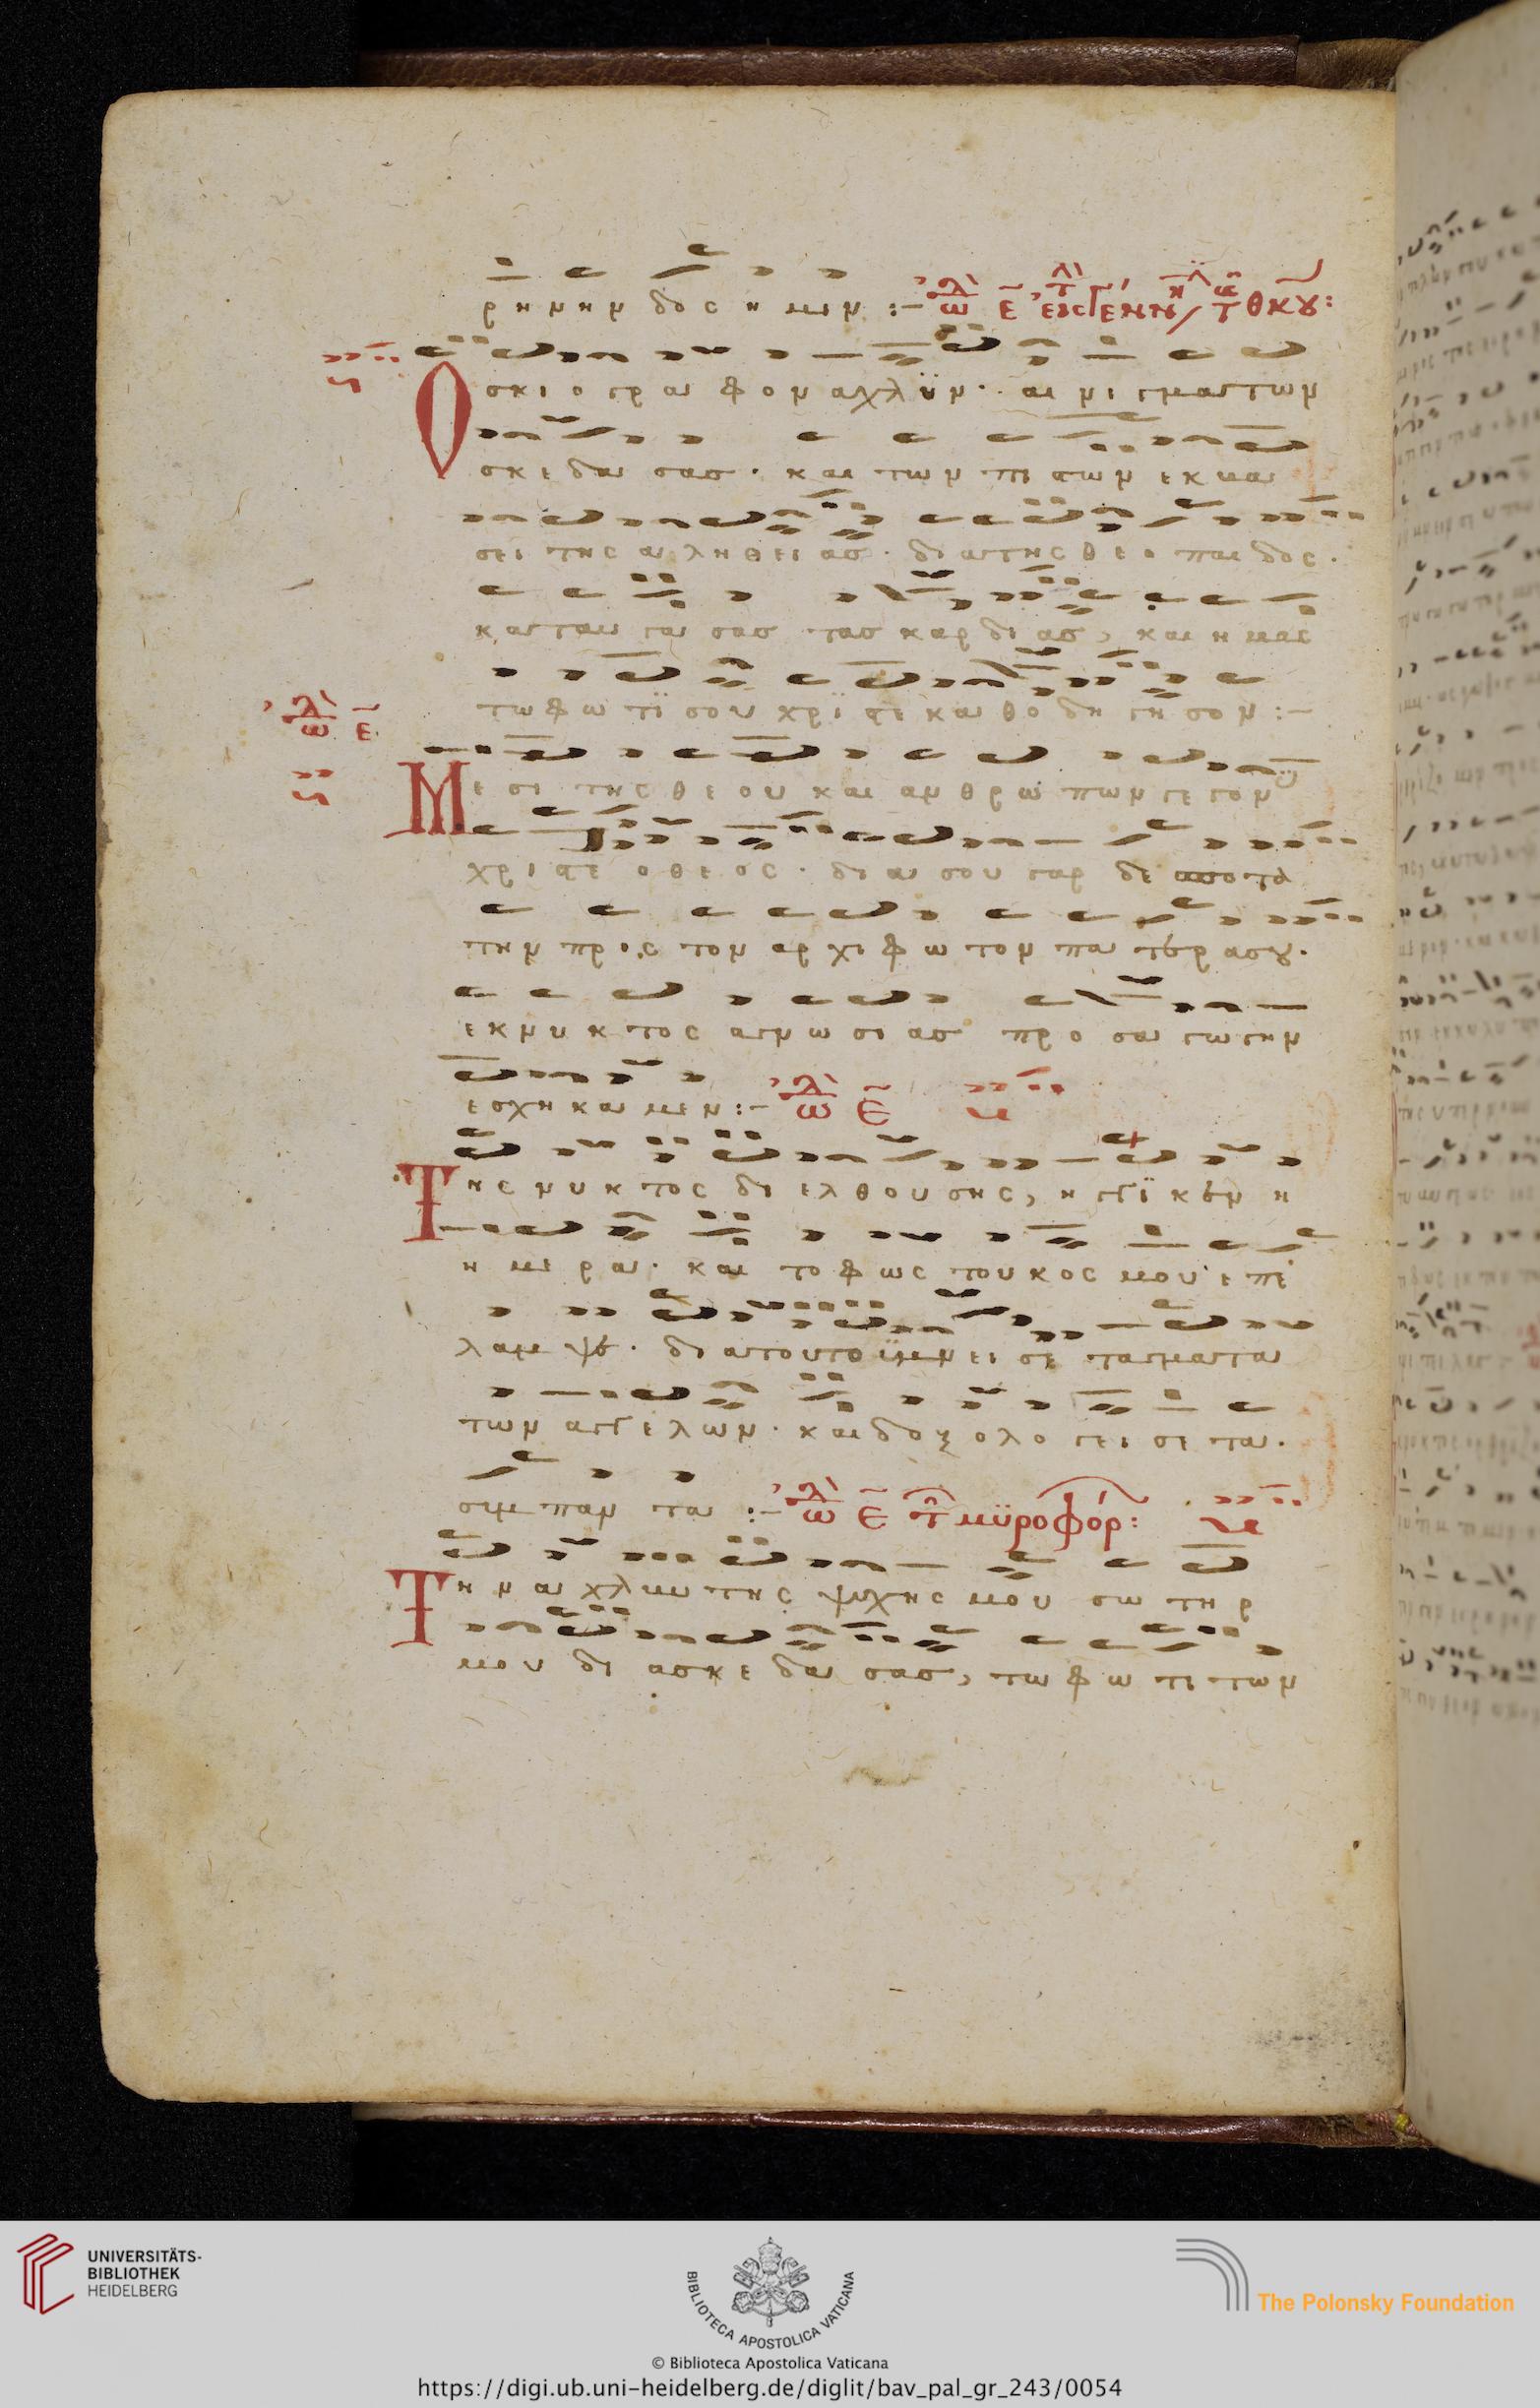 ρηνην δος η μιν :- ᾠδὴ ε̄
Ο σκιερα φον αχλυν· αινιγματων
σκεδασας· και των πιστων εκμα
σει της αληθειας· δια της θεοπαιδος·
καταυγασας τας καρδιας, και ημας
τω φωτι σου χριστε καθοδηγησον :-
ᾠδὴ ε̄
Μεσιτης θεου και ανθρωπων γεγον
χριστε ο θεος· δια σου γαρ δεσποτα
την προς τον αρχιφωτον πατερα σου·
εκ νυκτος αγνωσιας προσαγωγην
εσχηκαμεν :- ᾠδὴ ε̄
Της νυκτος διελθουσης, ηγγικεν η
ημερα· και το φως του κοσμου επε
λαμψε· δια τουτο υμνει σε ταγματα
των αγγελων· και δοξολογει σε τα·
συμπαντα :- ᾠδὴ ε̄ τ̑ μϋροφόρ:
Την αχλυν της ψυχης μου σωτηρ
μου διασκεδασας, τω φωτι των
UNIVERSITÄTS-
BIBLIOTHEK
HEIDELBERG
BIBLIOTECA APOSTOLICA VATICANA
The Polonsky Foundation
© Biblioteca Apostolica Vaticana
https://digi.ub.uni-heidelberg.de/diglit/bav_pal_gr_243/0054